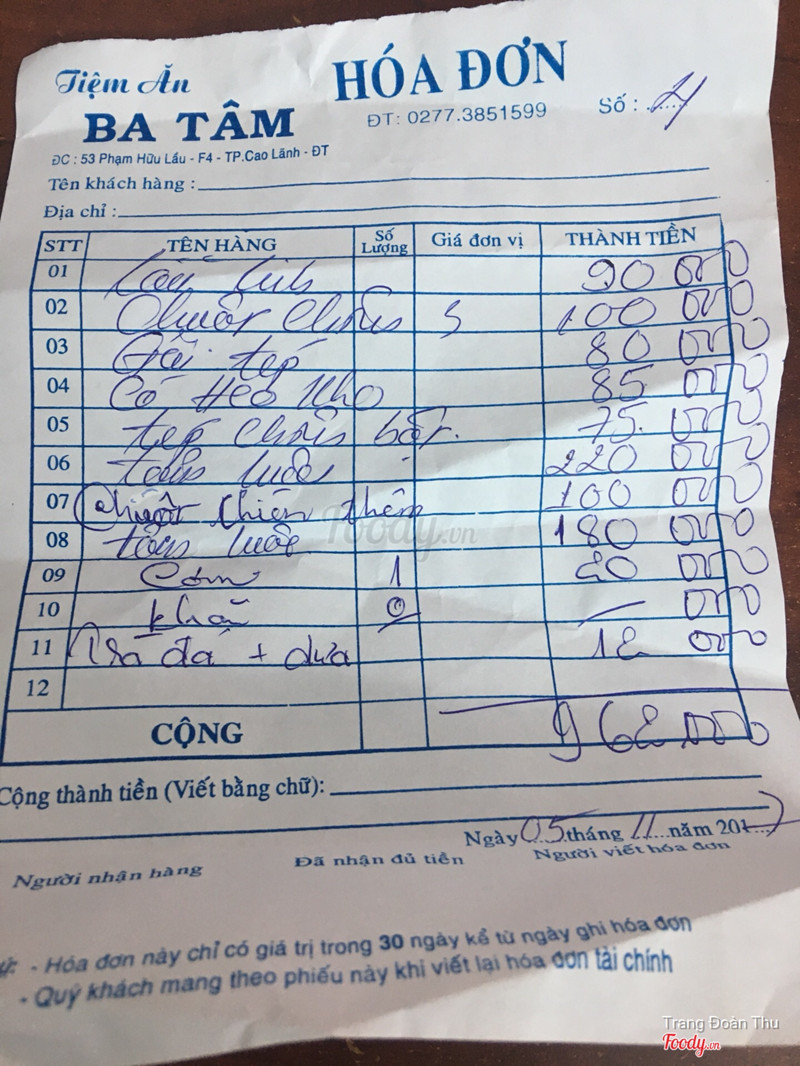 Tiệm Ăn
BA TÂM
HÓA ĐƠN
ĐT: 0277.3851599
Số :
ĐC : 53 Phạm Hữu Lầu - F4 - TP.Cao Lãnh - ĐT
Tên khách hàng :
Địa chỉ :
STT TÊN HÀNG Số Lượng Giá đơn vị THÀNH TIỀN
01 90 000
02 Chuột chiên 5 100 000
03 tép 80 000
04 Cổ Heo kho 85 000
05 tép chiên bột. 75 000
06 luộc 220 000
07 Chuột chiên thêm 100 000
08 luộc 180 000
09 Cơm 1 20 000
10 khăn 0 — 000
11 Trà đá + dừa 12 000
12
CỘNG 962 000
Cộng thành tiền (Viết bằng chữ):
Ngày 05 tháng 11 năm 2017
Người nhận hàng Đã nhận đủ tiền Người viết hóa đơn
- Hóa đơn này chỉ có giá trị trong 30 ngày kể từ ngày ghi hóa đơn
- Quý khách mang theo phiếu này khi viết lại hóa đơn tài chính
Foody.vn
Trang Đoàn Thu
Foody.vn